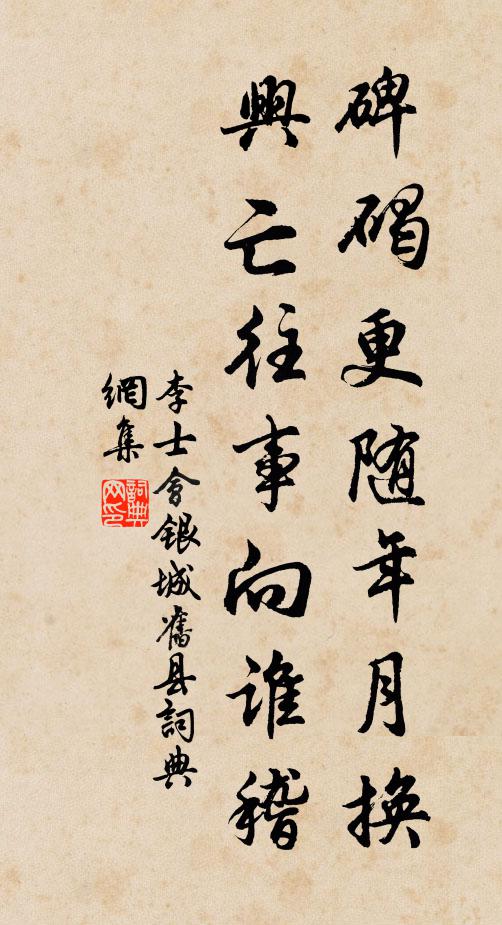 碑碣更随年月換
興亡往事向誰稽
李士會銀城舊县詞典
網集
詞典
网印